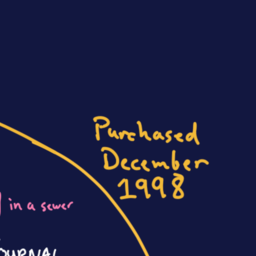 Purchased
December
1998
in a sewer